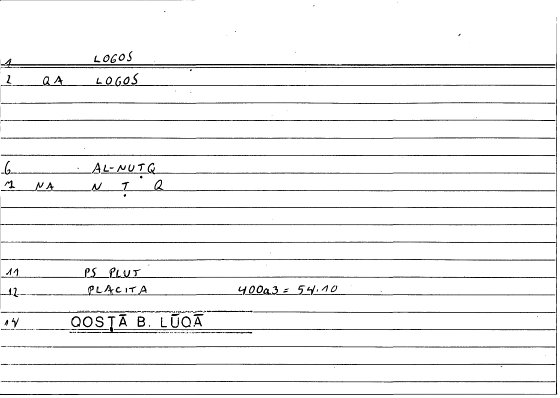 1 LOGOS
2 QA LOGOS
6 AL-NUṬQ
7 NA N Ṭ Q
11 PS PLUT
12 PLACITA 400a3 = 54.10
14 QOSṬĀ B. LŪQĀ